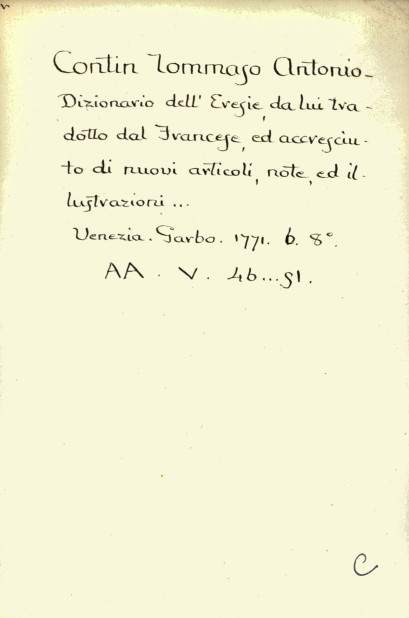 Contin Tommaso Antonio_
Dizionario dell' Eresie, da lui tra-
dotto dal Francese, ed accresciu-
to di nuovi articoli, note, ed il-
lustrazioni...
Venezia. Garbo. 1771. 6. 8°.
AA. V. 46...51.
C